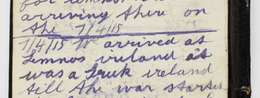 for
arriving there on
the 7/4/15
7/4/15 We arrived at
Lemnos ireland it
was a Turk ireland
till the war startes